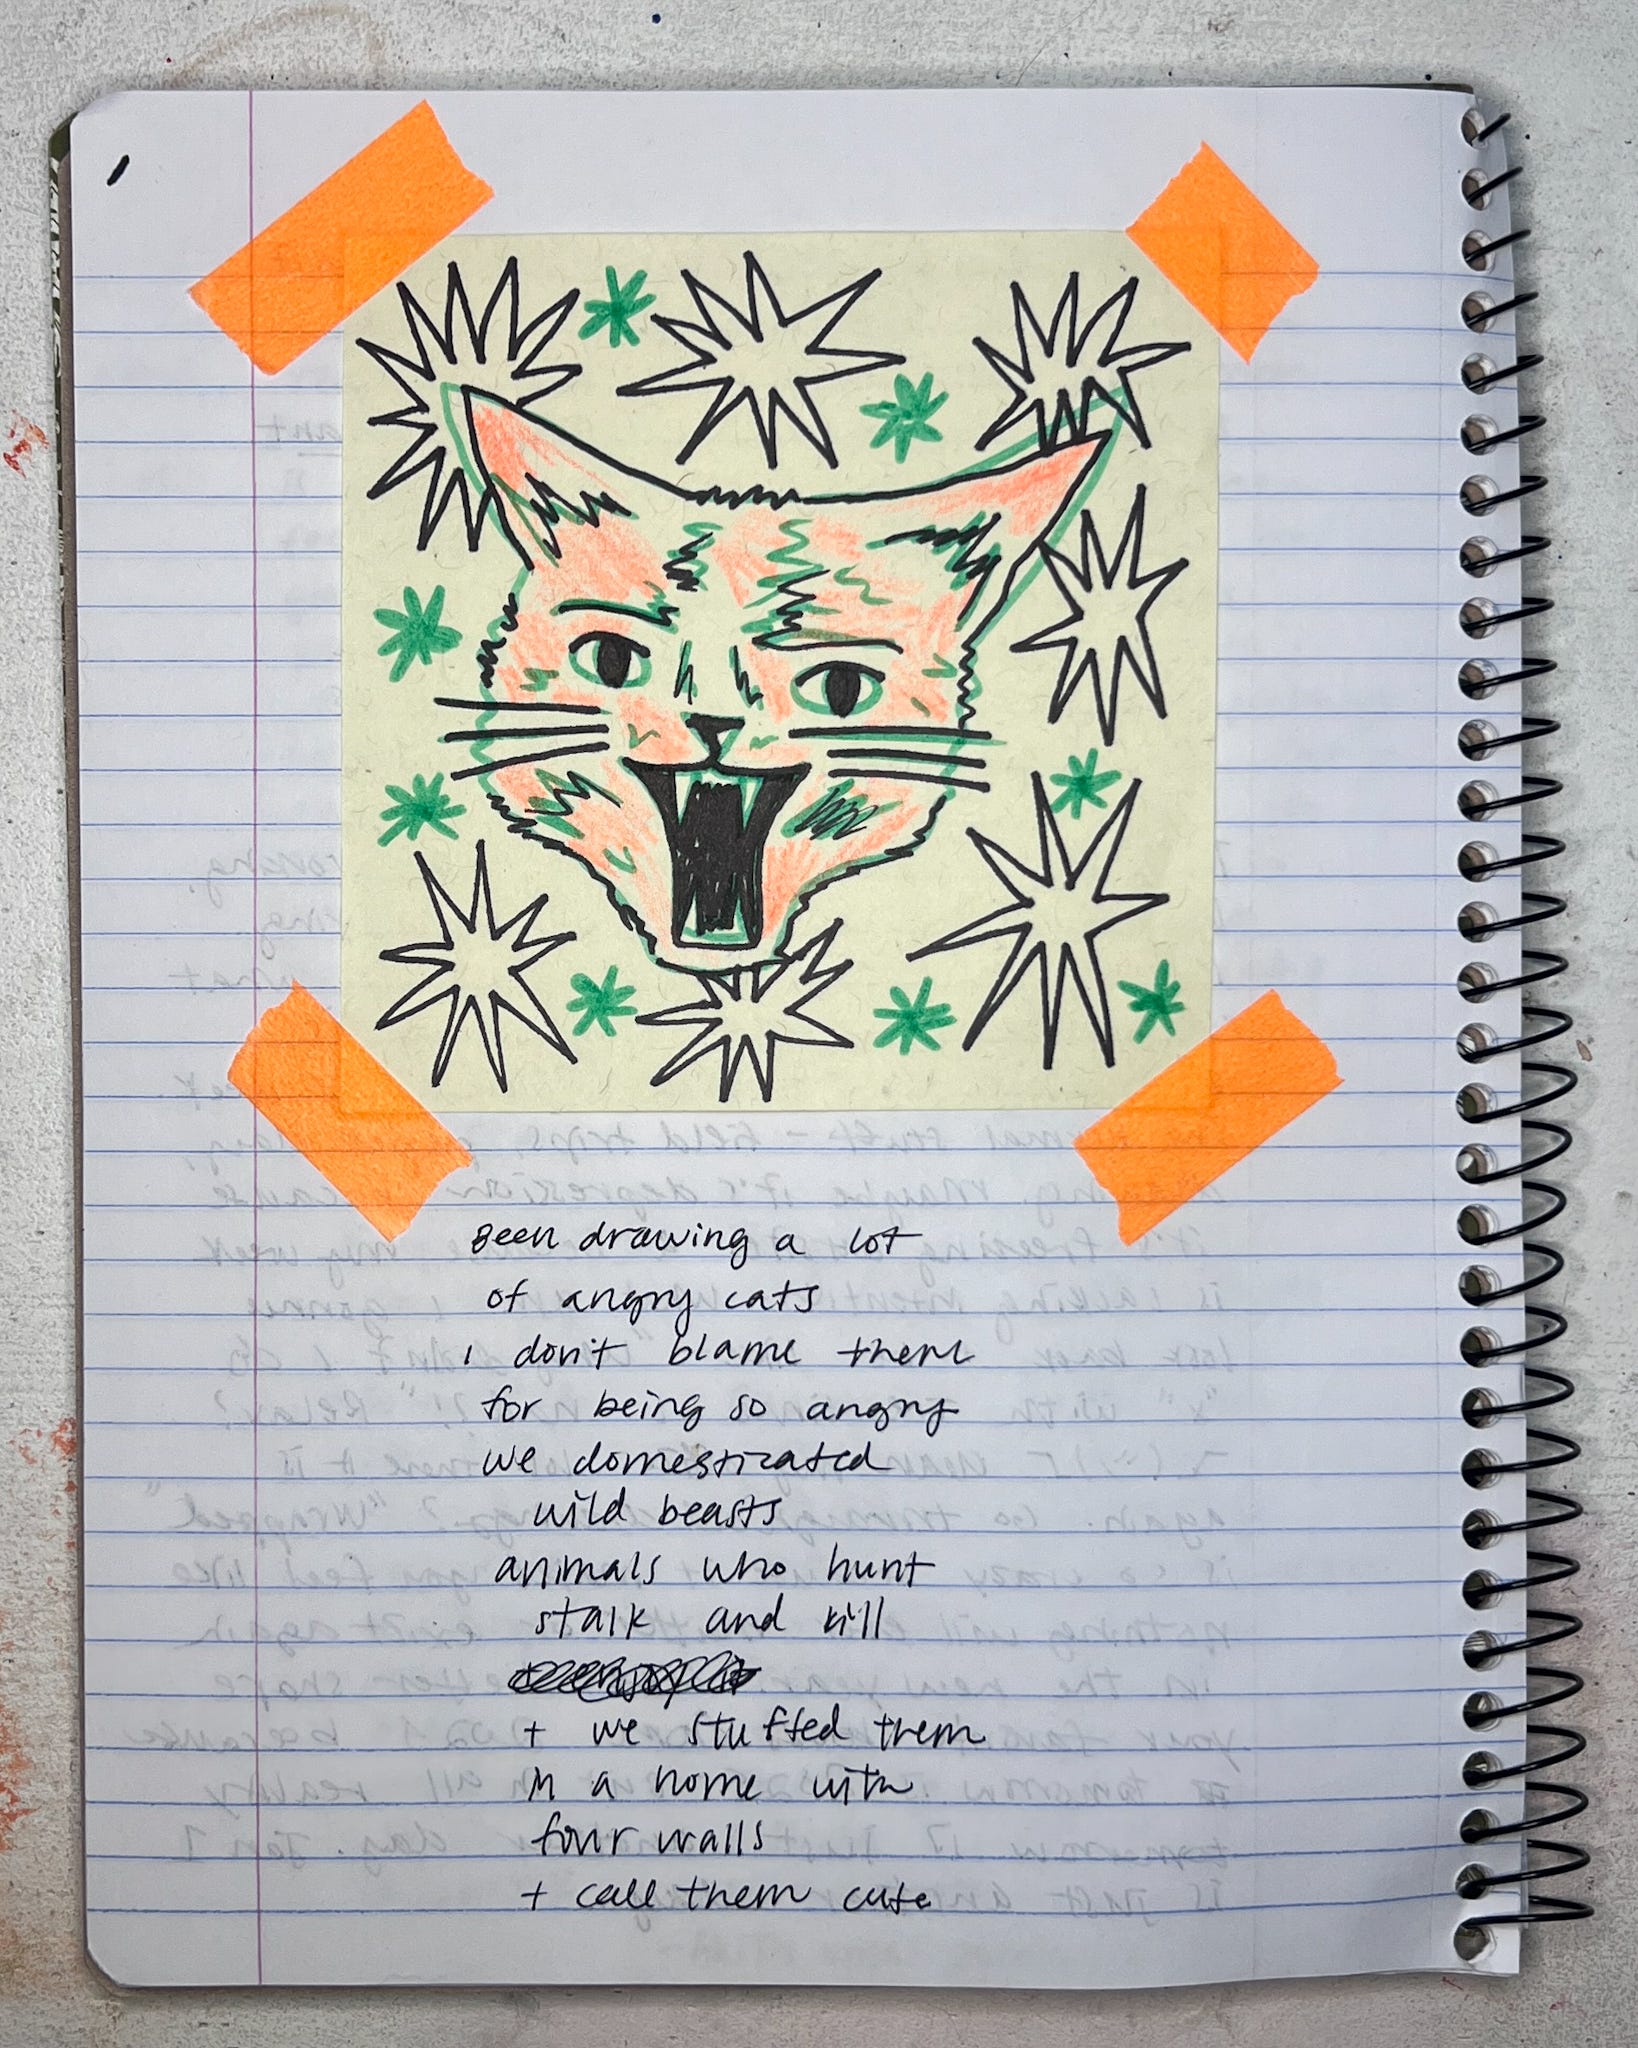 Been drawing a lot
of angry cats
I don't blame them
for being so angry
we domesticated
wild beasts
animals who hunt
stalk and kill
+ we stuffed them
in a home with
four walls
+ call them cute